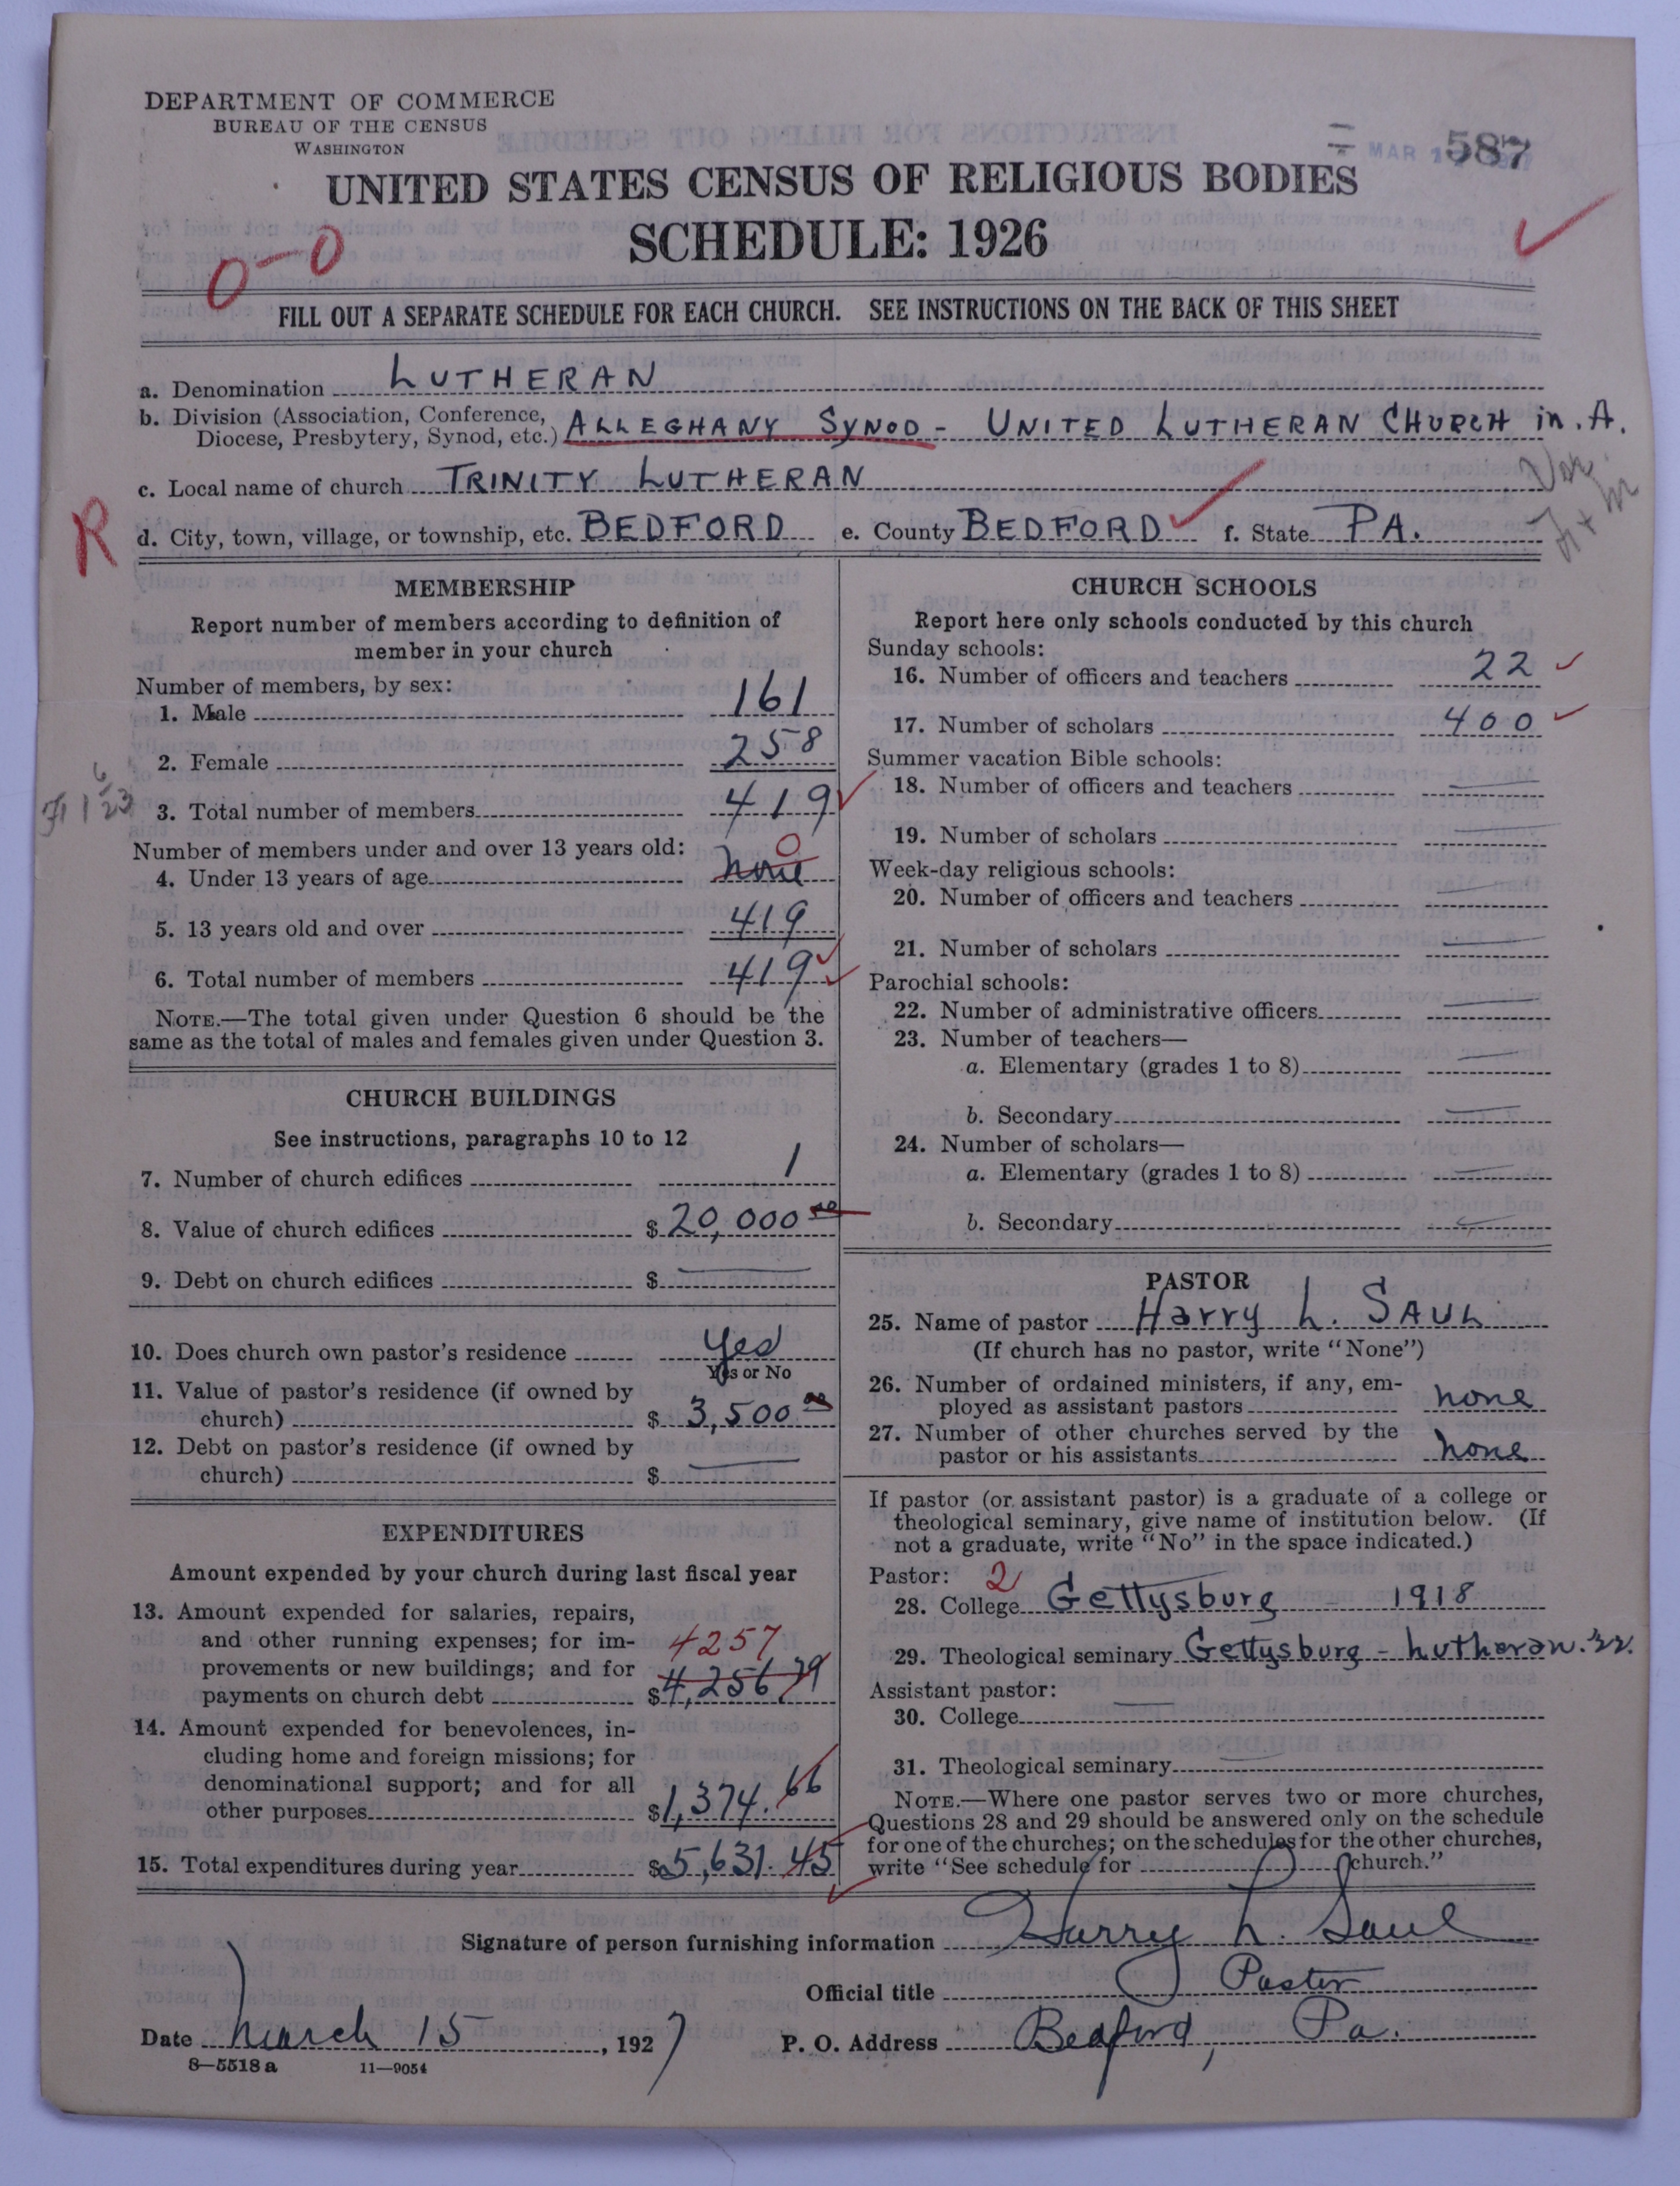 DEPARTMENT OF COMMERCE
BUREAU OF THE CENSUS
WASHINGTON
MAR
587
UNITED STATES CENSUS OF RELIGIOUS BODIES
SCHEDULE: 1926
0-0
FILL OUT A SEPARATE SCHEDULE FOR EACH CHURCH. SEE INSTRUCTIONS ON THE BACK OF THIS SHEET
a. Denomination LUTHERAN
b. Division (Association, Conference,
Diocese, Presbytery, Synod, etc.) ALLEGHANY SYNOD - UNITED LUTHERAN CHURCH in. A.
c. Local name of church TRINITY LUTHERAN
R
d. City, town, village, or township, etc. BEDFORD e. County BEDFORD f. State PA.
MEMBERSHIP
Report number of members according to definition of
member in your church
Number of members, by sex:
1. Male 161
2. Female 258
3. Total number of members 419
Number of members under and over 13 years old:
0
4. Under 13 years of age none
5. 13 years old and over 419
6. Total number of members 419
NOTE.—The total given under Question 6 should be the
same as the total of males and females given under Question 3.
CHURCH BUILDINGS
See instructions, paragraphs 10 to 12
7. Number of church edifices 1
8. Value of church edifices $20,000 00
9. Debt on church edifices $
10. Does church own pastor's residence yes
Yes or No
11. Value of pastor's residence (if owned by
church) $ 3,500 00
12. Debt on pastor's residence (if owned by
church) $
EXPENDITURES
Amount expended by your church during last fiscal year
13. Amount expended for salaries, repairs,
and other running expenses; for im-
4257
provements or new buildings; and for
payments on church debt $4,256 79
14. Amount expended for benevolences, in-
cluding home and foreign missions; for
denominational support; and for all
other purposes $1,374.66
15. Total expenditures during year $5,631.45
CHURCH SCHOOLS
Report here only schools conducted by this church
Sunday schools:
16. Number of officers and teachers 22
17. Number of scholars 400
Summer vacation Bible schools:
18. Number of officers and teachers
19. Number of scholars
Week-day religious schools:
20. Number of officers and teachers
21. Number of scholars
Parochial schools:
22. Number of administrative officers
23. Number of teachers—
a. Elementary (grades 1 to 8)
b. Secondary
24. Number of scholars—
a. Elementary (grades 1 to 8)
b. Secondary
PASTOR
25. Name of pastor Harry L. SAUL
(If church has no pastor, write "None")
26. Number of ordained ministers, if any, em-
ployed as assistant pastors none
27. Number of other churches served by the
pastor or his assistants none
If pastor (or assistant pastor) is a graduate of a college or
theological seminary, give name of institution below. (If
not a graduate, write "No" in the space indicated.)
Pastor: 2
28. College Gettysburg 1918
29. Theological seminary Gettysburg - Lutheran. '22.
Assistant pastor:
30. College
31. Theological seminary
NOTE.—Where one pastor serves two or more churches,
Questions 28 and 29 should be answered only on the schedule
for one of the churches; on the schedules for the other churches,
write "See schedule for church."
Signature of person furnishing information Harry L. Saul
Official title Pastor
Date March 15, 1927 P. O. Address Bedford, Pa.
8—5518 a 11—9054